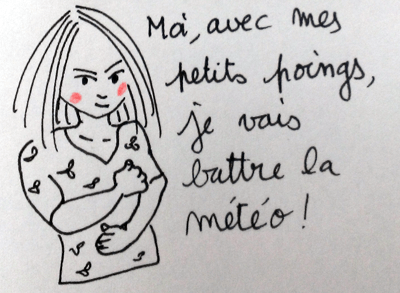 Moi, avec mes
petits poings,
je vais
battre la
météo !